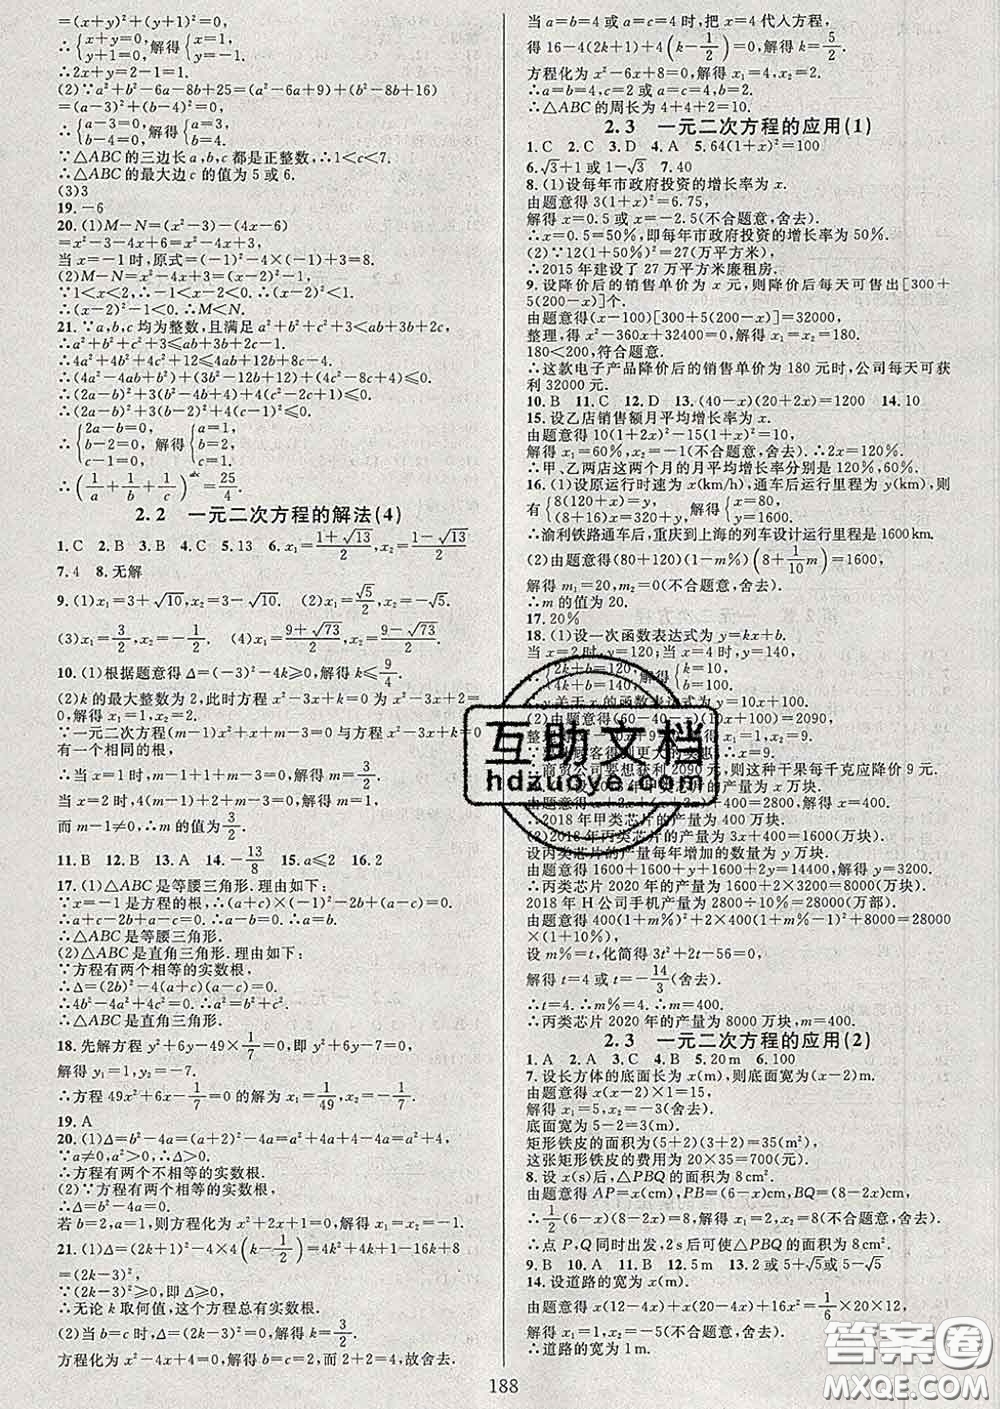 =(x+y)²+(y+1)²=0.
∴{x+y=0, y+1=0. 解得{x=1, y=-1.
∴2x+y=2-1=1.
(2)∵a²+b²-6a-8b+25=(a²-6a+9)+(b²-8b+16)
=(a-3)²+(b-4)²=0,
∴{a-3=0, b-4=0. 解得{a=3, b=4.
∵△ABC的三边长a,b,c都是正整数,∴1<c<7.
∴△ABC的最大边c的值为5或6.
(3)3
19.-6
20.(1)M-N=(x²-3)-(4x-6)
=x²-3-4x+6=x²-4x+3,
当x=-1时,原式=(-1)²-4×(-1)+3=8.
(2)M-N=x²-4x+3=(x-2)²-1.
∵1<x<2,∴-1<x-2<0.∴0<(x-2)²<1.
∴(x-2)²-1<0.∴M<N.
21.∵a,b,c均为整数,且满足a²+b²+c²+3<ab+3b+2c,
∴a²+b²+c²+3≤ab+3b+2c-1.
∴4a²+4b²+4c²+12≤4ab+12b+8c-4.
∴(4a²-4ab+b²)+(3b²-12b+12)+(4c²-8c+4)≤0.
∴(2a-b)²+3(b²-4b+4)+4(c²-2c+1)≤0.
∴(2a-b)²+3(b-2)²+4(c-1)²≤0.
∴{2a-b=0, b-2=0, c-1=0, 解得{a=1, b=2, c=1.
∴(1/a+1/b+1/c)^abc=25/4.
2.2 一元二次方程的解法(4)
1.C 2.B 3.B 4.C 5.13 6.x₁=(1+√13)/2,x₂=(1-√13)/2
7.4 8.无解
9.(1)x₁=3+√10,x₂=3-√10. (2)x₁=√5/2,x₂=-√5.
(3)x₁=3/2,x₂=-1/2. (4)x₁=(9+√73)/2,x₂=(9-√73)/2.
10.(1)根据题意得Δ=(-3)²-4k≥0,解得k≤9/4.
(2)k的最大整数为2,此时方程x²-3x+k=0为x²-3x+2=0,解得x₁=1,x₂=2.
∵一元二次方程(m-1)x²+x+m-3=0与方程x²-3x+k=0有一个相同的根,
∴当x=1时,m-1+1+m-3=0,解得m=3/2.
当x=2时,4(m-1)+2+m-3=0,解得m=1,
而m-1≠0,∴m的值为3/2.
11.B 12.B 13.A 14.-13/8 15.a≤2 16.2
17.(1)△ABC是等腰三角形.理由如下:
∵x=-1是方程的根,∴(a+c)×(-1)²-2b+(a-c)=0.
∴a+c-2b+a-c=0.∴a-b=0.∴a=b.
∴△ABC是等腰三角形.
(2)△ABC是直角三角形.理由如下:
∵方程有两个相等的实数根,
∴Δ=(2b)²-4(a+c)(a-c)=0.
∴4b²-4a²+4c²=0.∴a²=b²+c².
∴△ABC是直角三角形.
18.先解方程y²+6y-49×1/7=0,即y²+6y-7=0,
解得y₁=1,y₂=-7.
∴方程49x²+6x-1/7=0的解为x₁=1/49,x₂=-1/7.
19.A
20.(1)Δ=b²-4a=(a+2)²-4a=a²+4a+4-4a=a²+4,
∵a≠0,a²>0,∴a²+4>0,∴Δ>0.
∴方程有两个不相等的实数根.
(2)∵方程有两个相等的实数根,
∴Δ=b²-4a=0.
若b=2,a=1,则方程化为x²+2x+1=0,解得x₁=x₂=-1.
21.(1)Δ=(2k+1)²-4×4(k-1/2)=4k²+4k+1-16k+8
=(2k-3)²,
∵(2k-3)²≥0,即Δ≥0,
∴无论k取何值,这个方程总有实数根.
(2)当b=c时,Δ=(2k-3)²=0,解得k=3/2.
方程化为x²-4x+4=0,解得b=c=2,而2+2=4,故舍去.
当a=b=4或a=c=4时,把x=4代入方程,
得16-4(2k+1)+4(k-1/2)=0,解得k=5/2.
方程化为x²-6x+8=0,解得x₁=4,x₂=2.
∴a=b=4,c=2或a=c=4,b=2.
∴△ABC的周长为4+4+2=10.
2.3 一元二次方程的应用(1)
1.C 2.C 3.D 4.A 5.64(1+x)²=100
6.√3+1或1-√3 7.40
8.(1)设每年市政府投资的增长率为x.
由题意得3(1+x)²=6.75,
解得x=0.5或x=-2.5(不合题意,舍去).
∴x=0.5=50%,即每年市政府投资的增长率为50%.
(2)∵12(1+50%)²=27(万平方米)
∴2015年建设了27万平方米廉租房.
9.设降价后的销售单价为x元,则降价后每天可售出[300+5(200-x)]个.
由题意得(x-100)[300+5(200-x)]=32000,
整理,得x²-360x+32400=0,解得x₁=x₂=180.
180<200,符合题意.
∴这款电子产品降价后的销售单价为180元时,公司每天可获利32000元.
10.B 11.C 12.D 13.(40-x)(20+2x)=1200 14.10
15.设乙店销售额月平均增长率为x.
由题意得10(1+2x)²-15(1+x)²=10,
解得x₁=60%,x₂=-1(不合题意,舍去).∴2x=120%.
∴甲、乙两店这两个月的月平均增长率分别是120%,60%.
16.(1)设原运行时速为x(km/h),通车后运行里程为y(km),则有{8(120+x)=y, (8+16)x=320+y. 解得{x=80, y=1600.
∴渝利铁路通车后,重庆到上海的列车设计运行里程是1600km.
(2)由题意得(80+120)(1-m%)(8+1/10 m)=1600,
解得m₁=20,m₂=0(不合题意,舍去).
∴m的值为20.
17.20%
18.(1)设一次函数表达式为y=kx+b.
当x=2时,y=120;当x=4时,y=140,
∴{2k+b=120, 4k+b=140, 解得{k=10, b=100.
∴y关于x的函数表达式为y=10x+100.
(2)由题意得(60-40-x)(10x+100)=2090,
则这种干果每千克应降价9元.
∴2018年甲类芯片的产量为400万块.
(2)2018年丙类芯片的产量为3x+400=1600(万块).
设丙类芯片的产量每年增加的数量为y万块.
由题意得1600+1600+y+1600+2y=14400,解得y=3200.
∴丙类芯片2020年的产量为1600+2×3200=8000(万块).
2018年H公司手机产量为2800÷10%=28000(万部).
由题意得400(1+m%)²+2×400(1+m%-1)²+8000=28000×(1+10%),
设m%=t,化简得3t²+2t-56=0,
解得t=4或t=-14/3(舍去).
∴t=4.∴m%=4.∴m=400.
∴丙类芯片2020年的产量为8000万块,m=400.
2.3 一元二次方程的应用(2)
1.A 2.A 3.C 4.B 5.20m 6.100
7.设长方体的底面长为x(m),则底面宽为(x-2)m.
由题意得x(x-2)×1=15,
解得x₁=5,x₂=-3(舍去).
底面宽为5-2=3(m).
矩形铁皮的面积为(5+2)(3+2)=35(m²),
这张矩形铁皮的费用为20×35=700(元).
8.设x(s)后,△PBQ的面积为8cm².
由题意得AP=x(cm),PB=(6-x)cm,BQ=(8-2x)(cm),
∴1/2(6-x)(8-2x)=8,解得x₁=2,x₂=8(不合题意,舍去).
∴点P,Q同时出发,2s后可使△PBQ的面积为8cm².
9.B 10.B 11.B 12.5m 13.2或5+√5或5-√5
14.设道路的宽为x(m).
由题意得x(12-4x)+x(20-4x)+16x²=1/6×20×12,
解得x₁=1,x₂=-5(不合题意,舍去).
∴道路的宽为1m.
188
互助文档
hdzuoye.com
答案圈
MXQE.COM